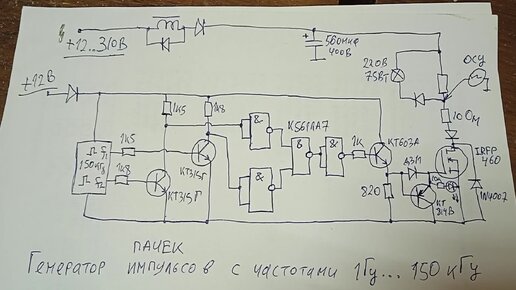 +12...310В
560мкф
400В
220В
75Вт
осц
10 Ом
IRFP
460
1N4007
+12В
1К5
1К8
К561ЛА7
КТ603А
1К
f1
150кГц
f2
1К5
1К8
КТ315Г
КТ315Г
820
КТ
814В
ПАЧЕК
Генератор импульсов с частотами 1Гц... 150 кГц